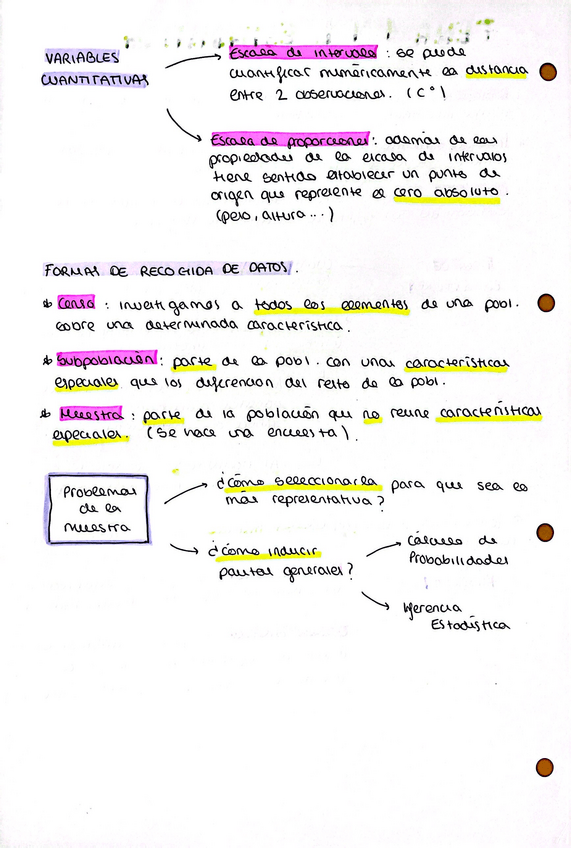 VARIABLES
CUANTITATIVAS
Escala de intervalo : se puede
cuantificar numéricamente la distancia
entre 2 observaciones. (Cº)
Escala de proporciones : además de las
propiedades de la escala de intervalos
tiene sentido establecer un punto de
origen que represente el cero absoluto.
(peso, altura...)
FORMAS DE RECOGIDA DE DATOS.
* Censo : investigamos a todos los elementos de una pobl.
sobre una determinada característica.
* Subpoblación : parte de la pobl. con unas características
especiales que los diferencian del resto de la pobl.
* Muestra : parte de la población que no reune características
especiales. (Se hace una encuesta).
Problemas
de la
muestra
¿cómo seleccionarla para que sea lo
más representativa?
¿cómo inducir
pautas generales?
cálculo de
Probabilidades
Inferencia
Estadística